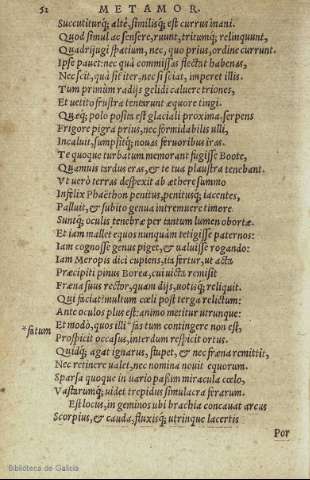 52 METAMOR.
Succutiturq́; altè, similisq́; est currus inani.
Quod simul ac sensere, ruunt, tritumq́; relinquunt,
Quadrijugi spatium, nec, quo prius, ordine currunt.
Ipse pauet: nec quà commissas flectat habenas,
Nec scit, quà sit iter: nec si sciat, imperet illis.
Tum primùm radijs gelidi caluere triones,
Et uetito frustra tentarunt æquore tingi.
Quæq́; polo posita est glaciali proxima, serpens
Frigore pigra prius, nec formidabilis ulli,
Incaluit, sumpsitq́; nouas feruoribus iras.
Te quoque turbatum memorant fugisse Boote,
Quamuis tardus eras, & te tua plaustra tenebant.
Vt verò terras despexit ab æthere summo
Infelix Phaëthon penitus, penitusq́; iacentes,
Palluit, & subito genua intremuere timore.
Suntq́; oculis tenebræ per tantum lumen obortæ.
Et iam mallet equos nunquàm tetigisse paternos:
Iam cognosse genus piget, & ualuisse rogando:
Iam Meropis dici cupiens, ita fertur, ut acta
Præcipiti pinus Borea, cui uicta remisit
Fræna suus rector, quam dijs, uotisq́; reliquit.
Qui faciat? multum cœli post terga relictum:
Ante oculos plus est: animo metitur utrunque:
*fatum
Et modò, quos illi *fas tam contingere non est,
Prospicit occasus, interdum respicit ortus.
Quidq́; agat ignarus, stupet, & nec fræna remittit,
Nec retinere ualet, nec nomina nouit equorum.
Sparsa quoque in uario passim miracula cœlo,
Vastarumq́; uidet trepidus simulacra ferarum.
Est locus, in geminos ubi brachia concauat arcus
Scorpius, & cauda, fluxisq́; utrinque lacertis
Por
Biblioteca de Galicia